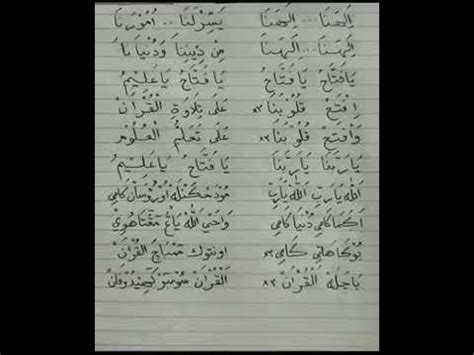 إِلٰهَنَا... إِلٰهَنَا يَسِّرْ لَنَا... أُمُوْرَنَا
إِلٰهَنَا...إِلٰهَنَا مِنْ دِيْنِنَا وَدُنْيَانَا
يَافَتَّاحُ يَافَتَّاحُ يَا فَتَّاحُ يَاعَلِيْمُ
اِفْتَحْ قُلُوْبَنَا ×٢ عَلَى تِلَاوَةِ الْقُرْآنْ
وَافْتَحْ قُلُوْبَنَا ×٢ عَلَى تَعَلُّمِ الْعُلُوْمْ
يَارَبَّنَا يَارَبَّنَا يَا فَتَّاحُ يَاعَلِيْمُ
اَللّٰه يَارَبِّ اَللّٰه يَارَبِّ مودهكنله اوروسان كامي
اكما كامي دنيا كامي واهي الله يڠ مڠتاهوي
بوكا هاتي كامي ×٢ اونتوك ممباچ القرآن
باچله القرآن ×٢ القرآن سومبر